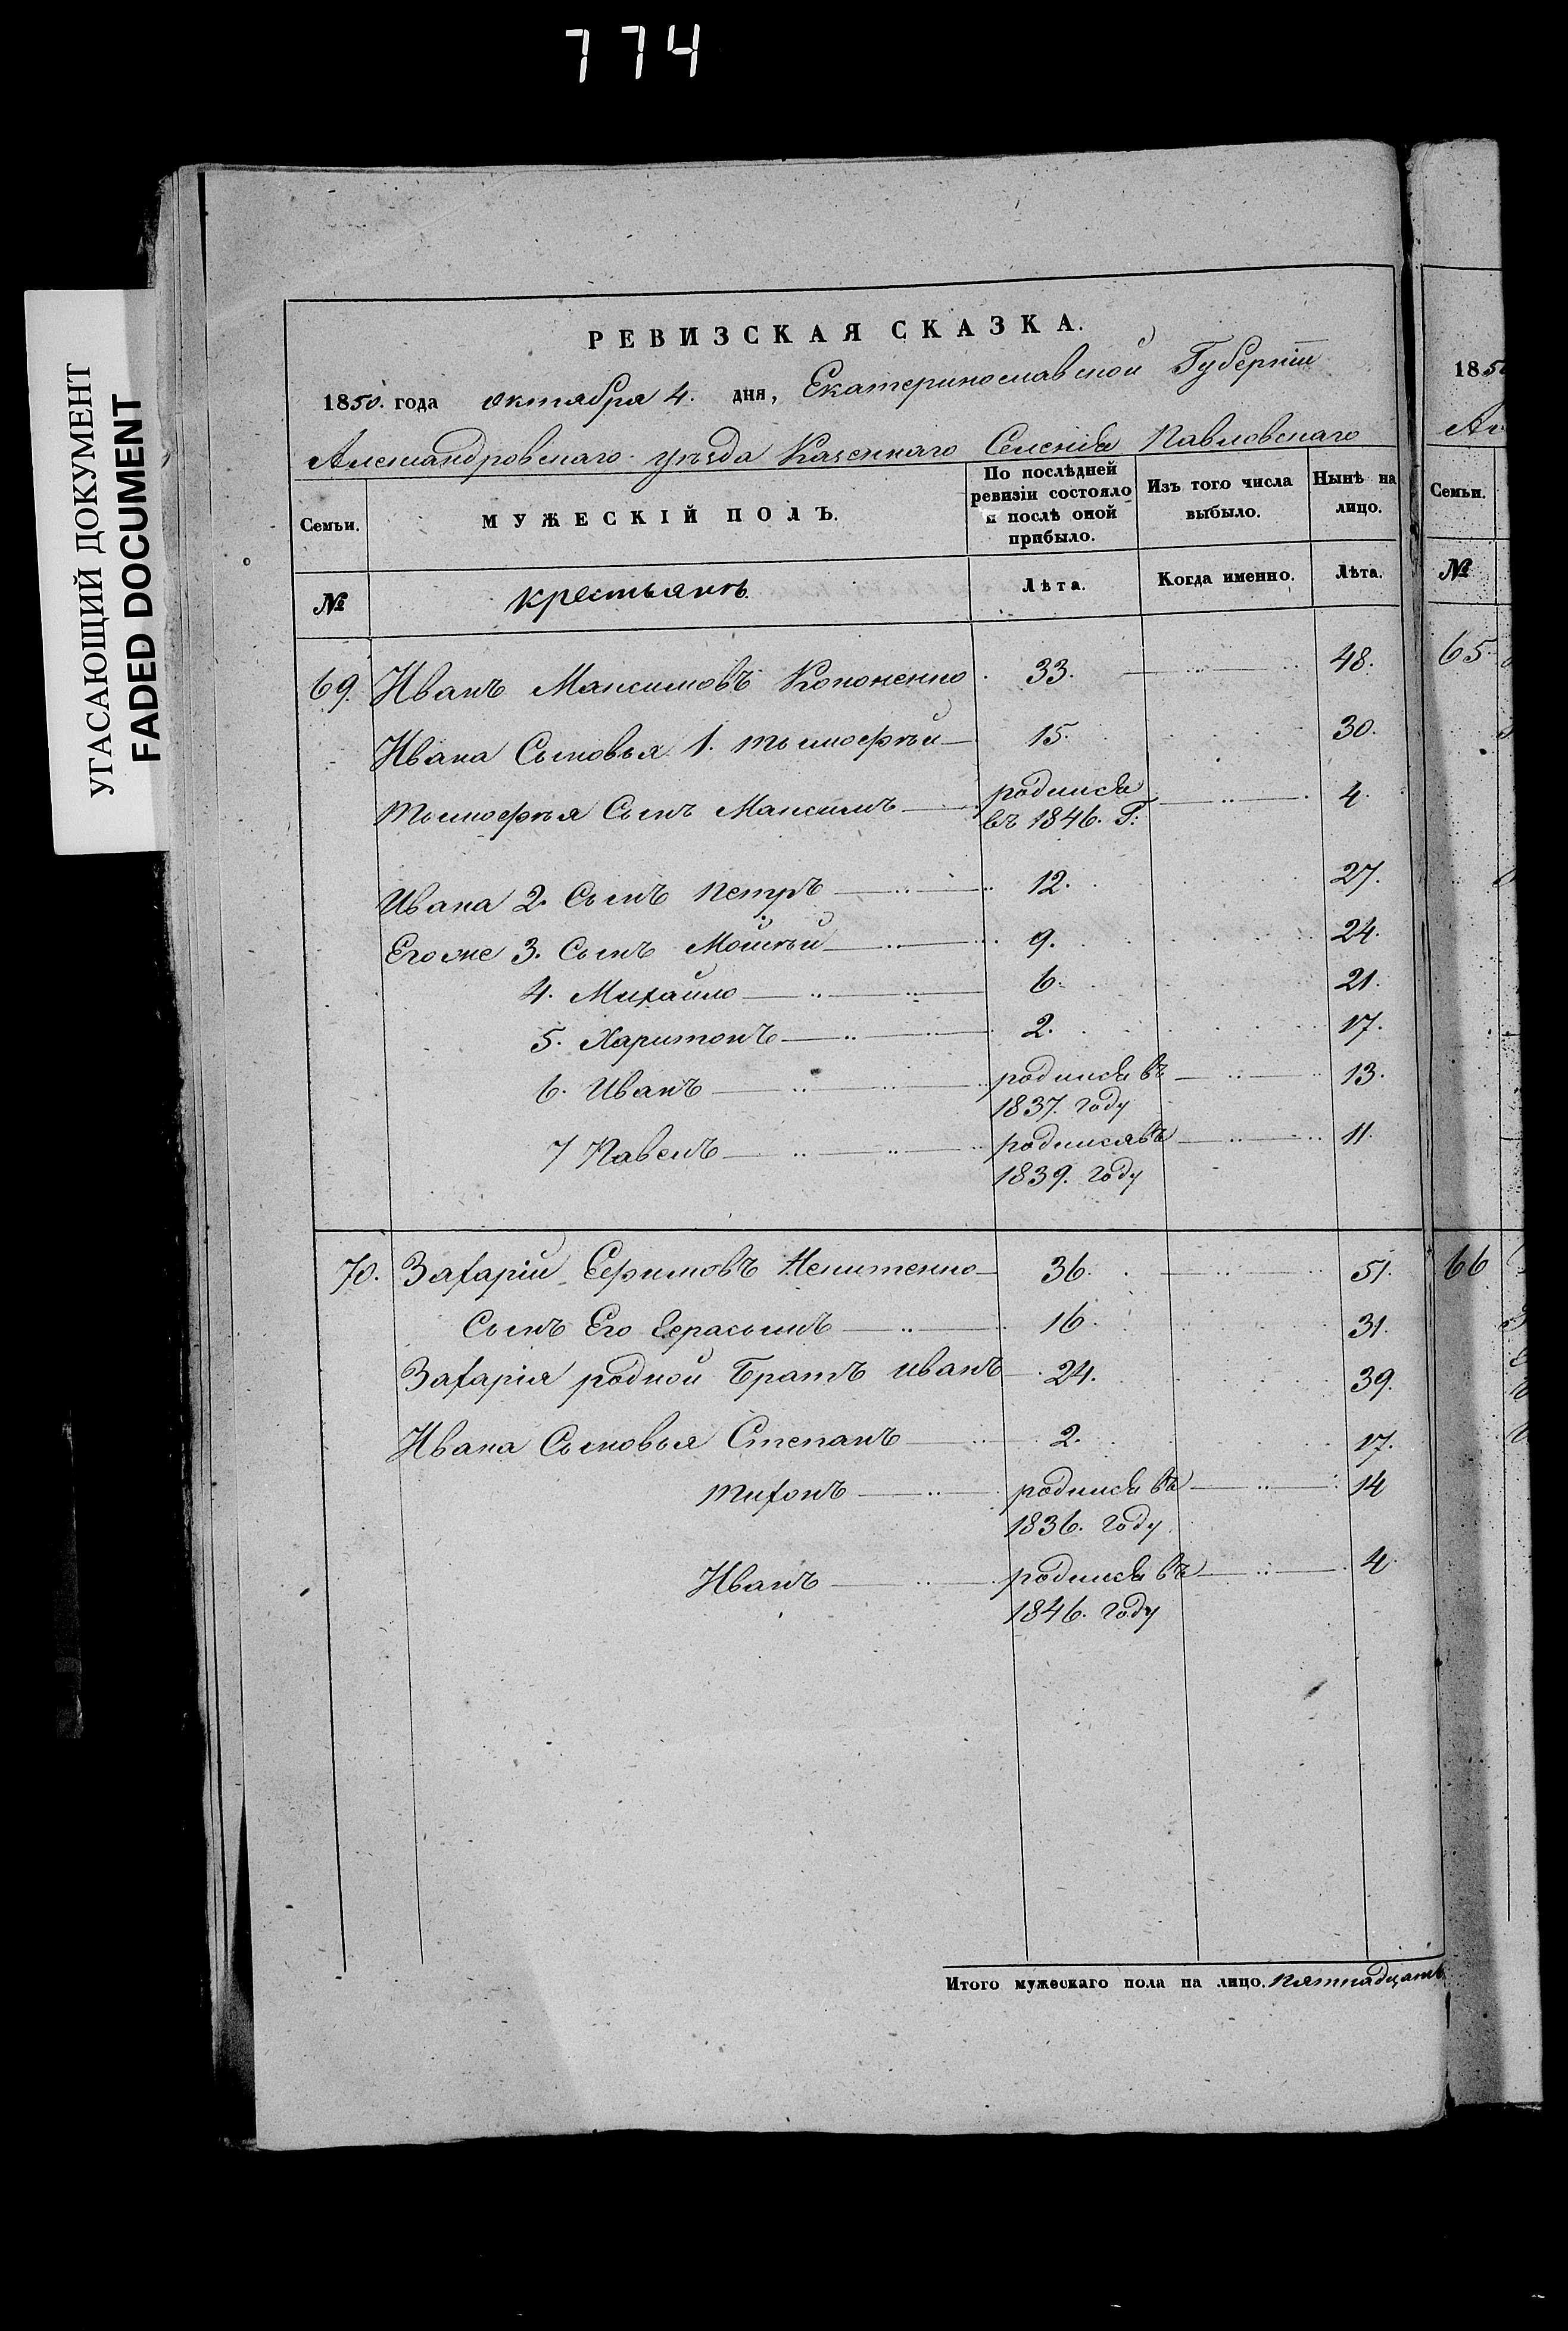 774
УГАСАЮЩИЙ ДОКУМЕНТ
FADED DOCUMENT
РЕВИЗСКАЯ СКАЗКА.
1850. года октября 4. дня, Екатеринославской Губернiи
Александровскаго уѣзда Казеннаго Селенiя Павловскаго
Семьи. МУЖЕСКІЙ ПОЛЪ. По послѣдней ревизіи состояло и послѣ оной прибыло. Изъ того числа выбыло. Нынѣ на лицо.
№ крестьянъ. Лѣта. Когда именно. Лѣта.
69. Иванъ Максимовъ Кононенко 33. 48.
Ивана Сыновья 1. тымофѣй 15. 30.
тымофѣя Сынъ Максимъ родился въ 1846. Г: 4.
Ивана 2. Сынъ петръ 12. 27.
Его же 3. Сынъ Мойсѣй 9. 24.
4. Михайло 6. 21.
5. Харитонъ 2. 17.
6. Иванъ родился въ 13.
1837. году
7 Павелъ родился въ 11.
1839. году
70. Захарій Ефимовъ 36. 51.
Сынъ Его Герасымъ 16. 31.
Захарія родной Братъ иванъ 24. 39.
Ивана Сыновья Степанъ 2. 17.
тихонъ родился въ 14
1836. году
Иванъ родился въ 4.
1846. году
Итого мужескаго пола на лицо. пятнадцать
185
Семьи.
№
65.
66